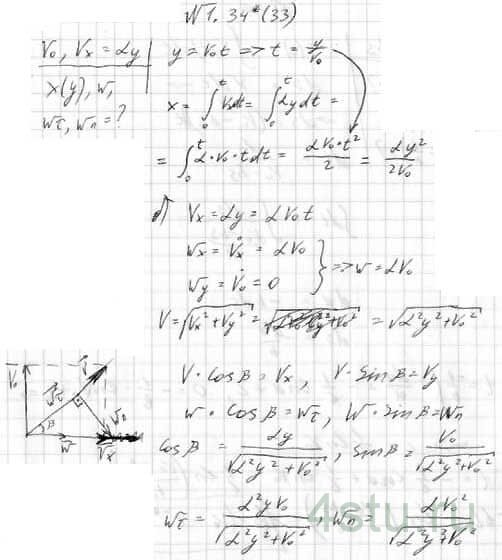 №1.34*(33)
V₀, Vx = αy
x(y), w,
wτ, wn = ?
y = V₀t => t = y/V₀
x = ∫₀ᵗ Vxdt = ∫₀ᵗ αydt =
= ∫₀ᵗ α·V₀·tdt = αV₀·t²/2 = αy²/2V₀
б) Vx = αy = αV₀t
wx = V̇x = αV₀
wy = V̇₀ = 0 } => w = αV₀
V = √(Vx²+Vy²) = = √(α²y²+V₀²)
V·cosβ = Vx, V·sinβ = Vy
w·cosβ = wτ, w·sinβ = wn
cosβ = αy/√(α²y²+V₀²), sinβ = V₀/√(α²y²+V₀²)
wτ = α²yV₀/√(α²y²+V₀²), wn = αV₀²/√(α²y²+V₀²)
V₀ V wτ wn β w Vx
4stu.ru